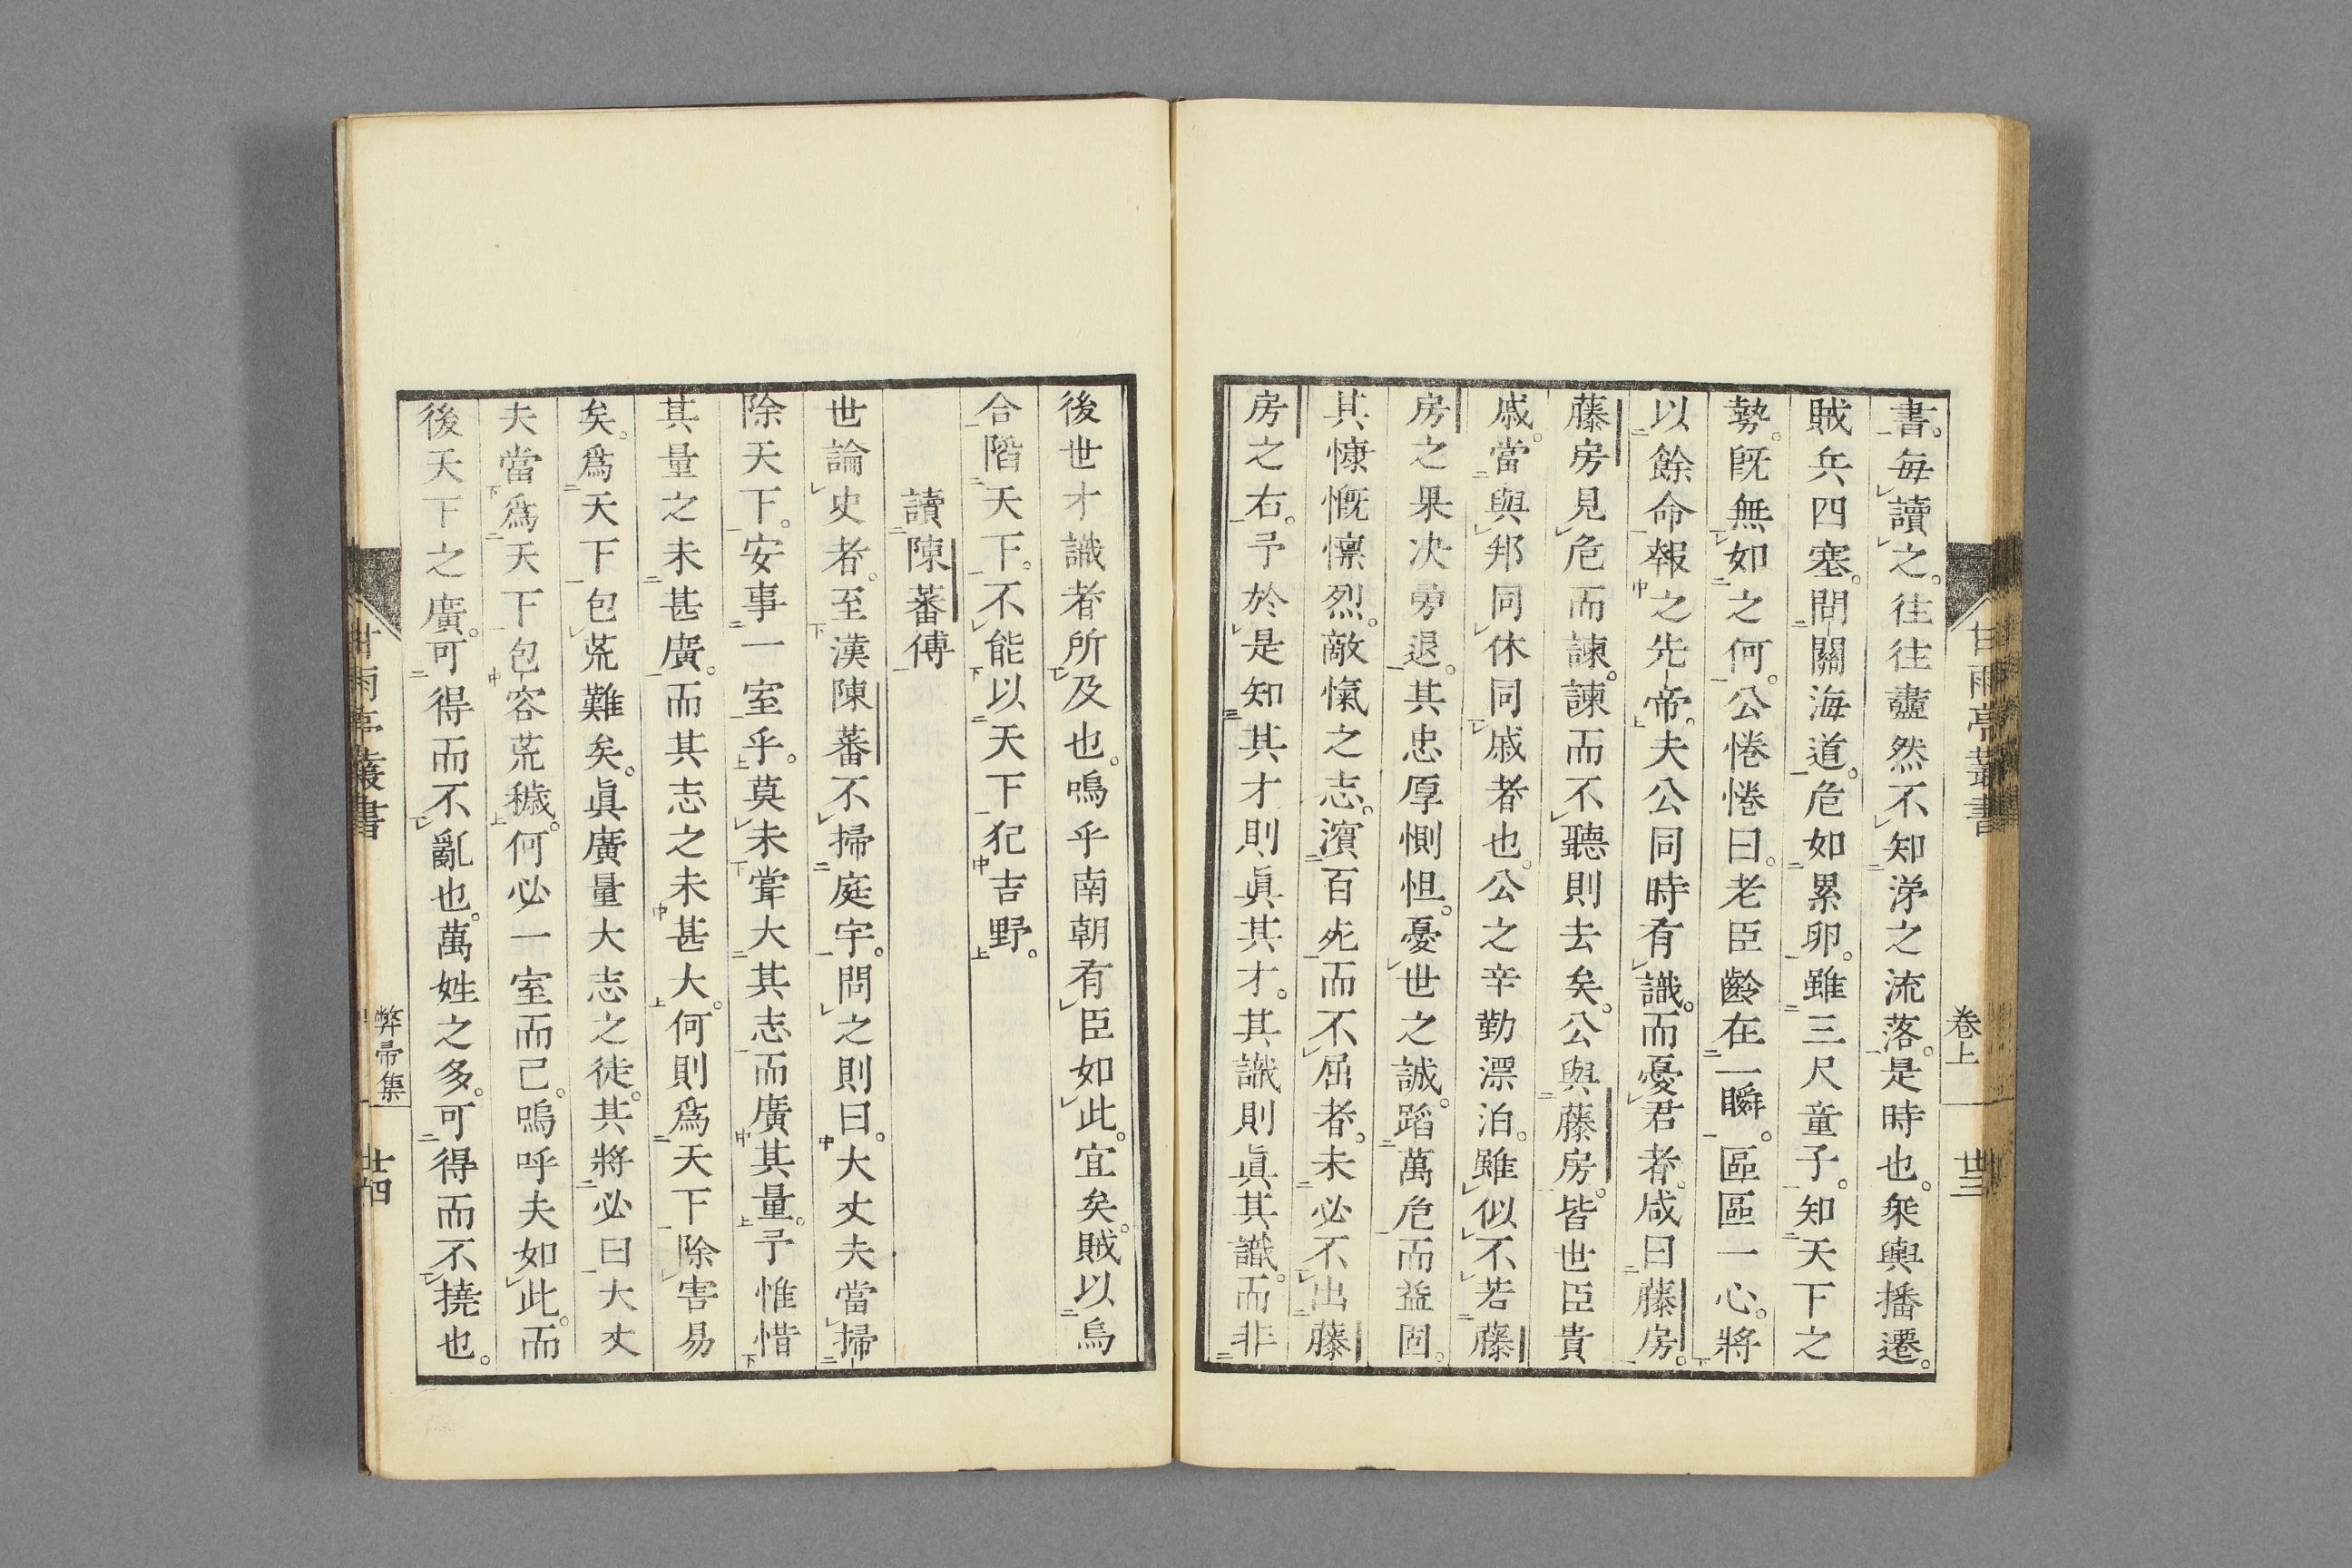 甘雨亭叢書 卷上 廿三
書。每讀之。往往衋然不知涕之流落。是時也。乗輿播遷。
賊兵四塞。間關海道。危如累卵。雖三尺童子。知天下之
勢。既無如之何。公惓惓曰。老臣齡在一瞬。區區一心。將
以餘命報之先帝。夫公同時有識。而憂君者。咸曰藤房。
藤房見危而諫。諫而不聽則去矣。公與藤房。皆世臣貴
戚。當與邦同休同戚者也。公之辛勤漂泊。雖似不若藤
房之果决勇退。其忠厚惻怛。憂世之誠。蹈萬危而益固。
其慷慨懍烈。敵愾之志。濱百死而不屈者。未必不出藤
房之右。予於是知其才則眞其才。其識則眞其識。而非
後世才識者所及也。嗚乎南朝有臣如此。宜矣。賊以烏
合蹈天下。不能以天下犯吉野。
讀陳蕃傅
世論史者。至漢陳蕃不掃庭宇。問之則曰。大丈夫當掃
除天下。安事一室乎。莫未甞大其志而廣其量。予惟惜
其量之未甚廣。而其志之未甚大。何則爲天下除害易
矣。爲天下包荒難矣。眞廣量大志之徒。其將必曰大丈
夫當爲天下包容荒穢。何必一室而己。嗚呼夫如此。而
後天下之廣。可得而不亂也。萬姓之多。可得而不撓也。
甘雨亭叢書 弊帚集 廿四